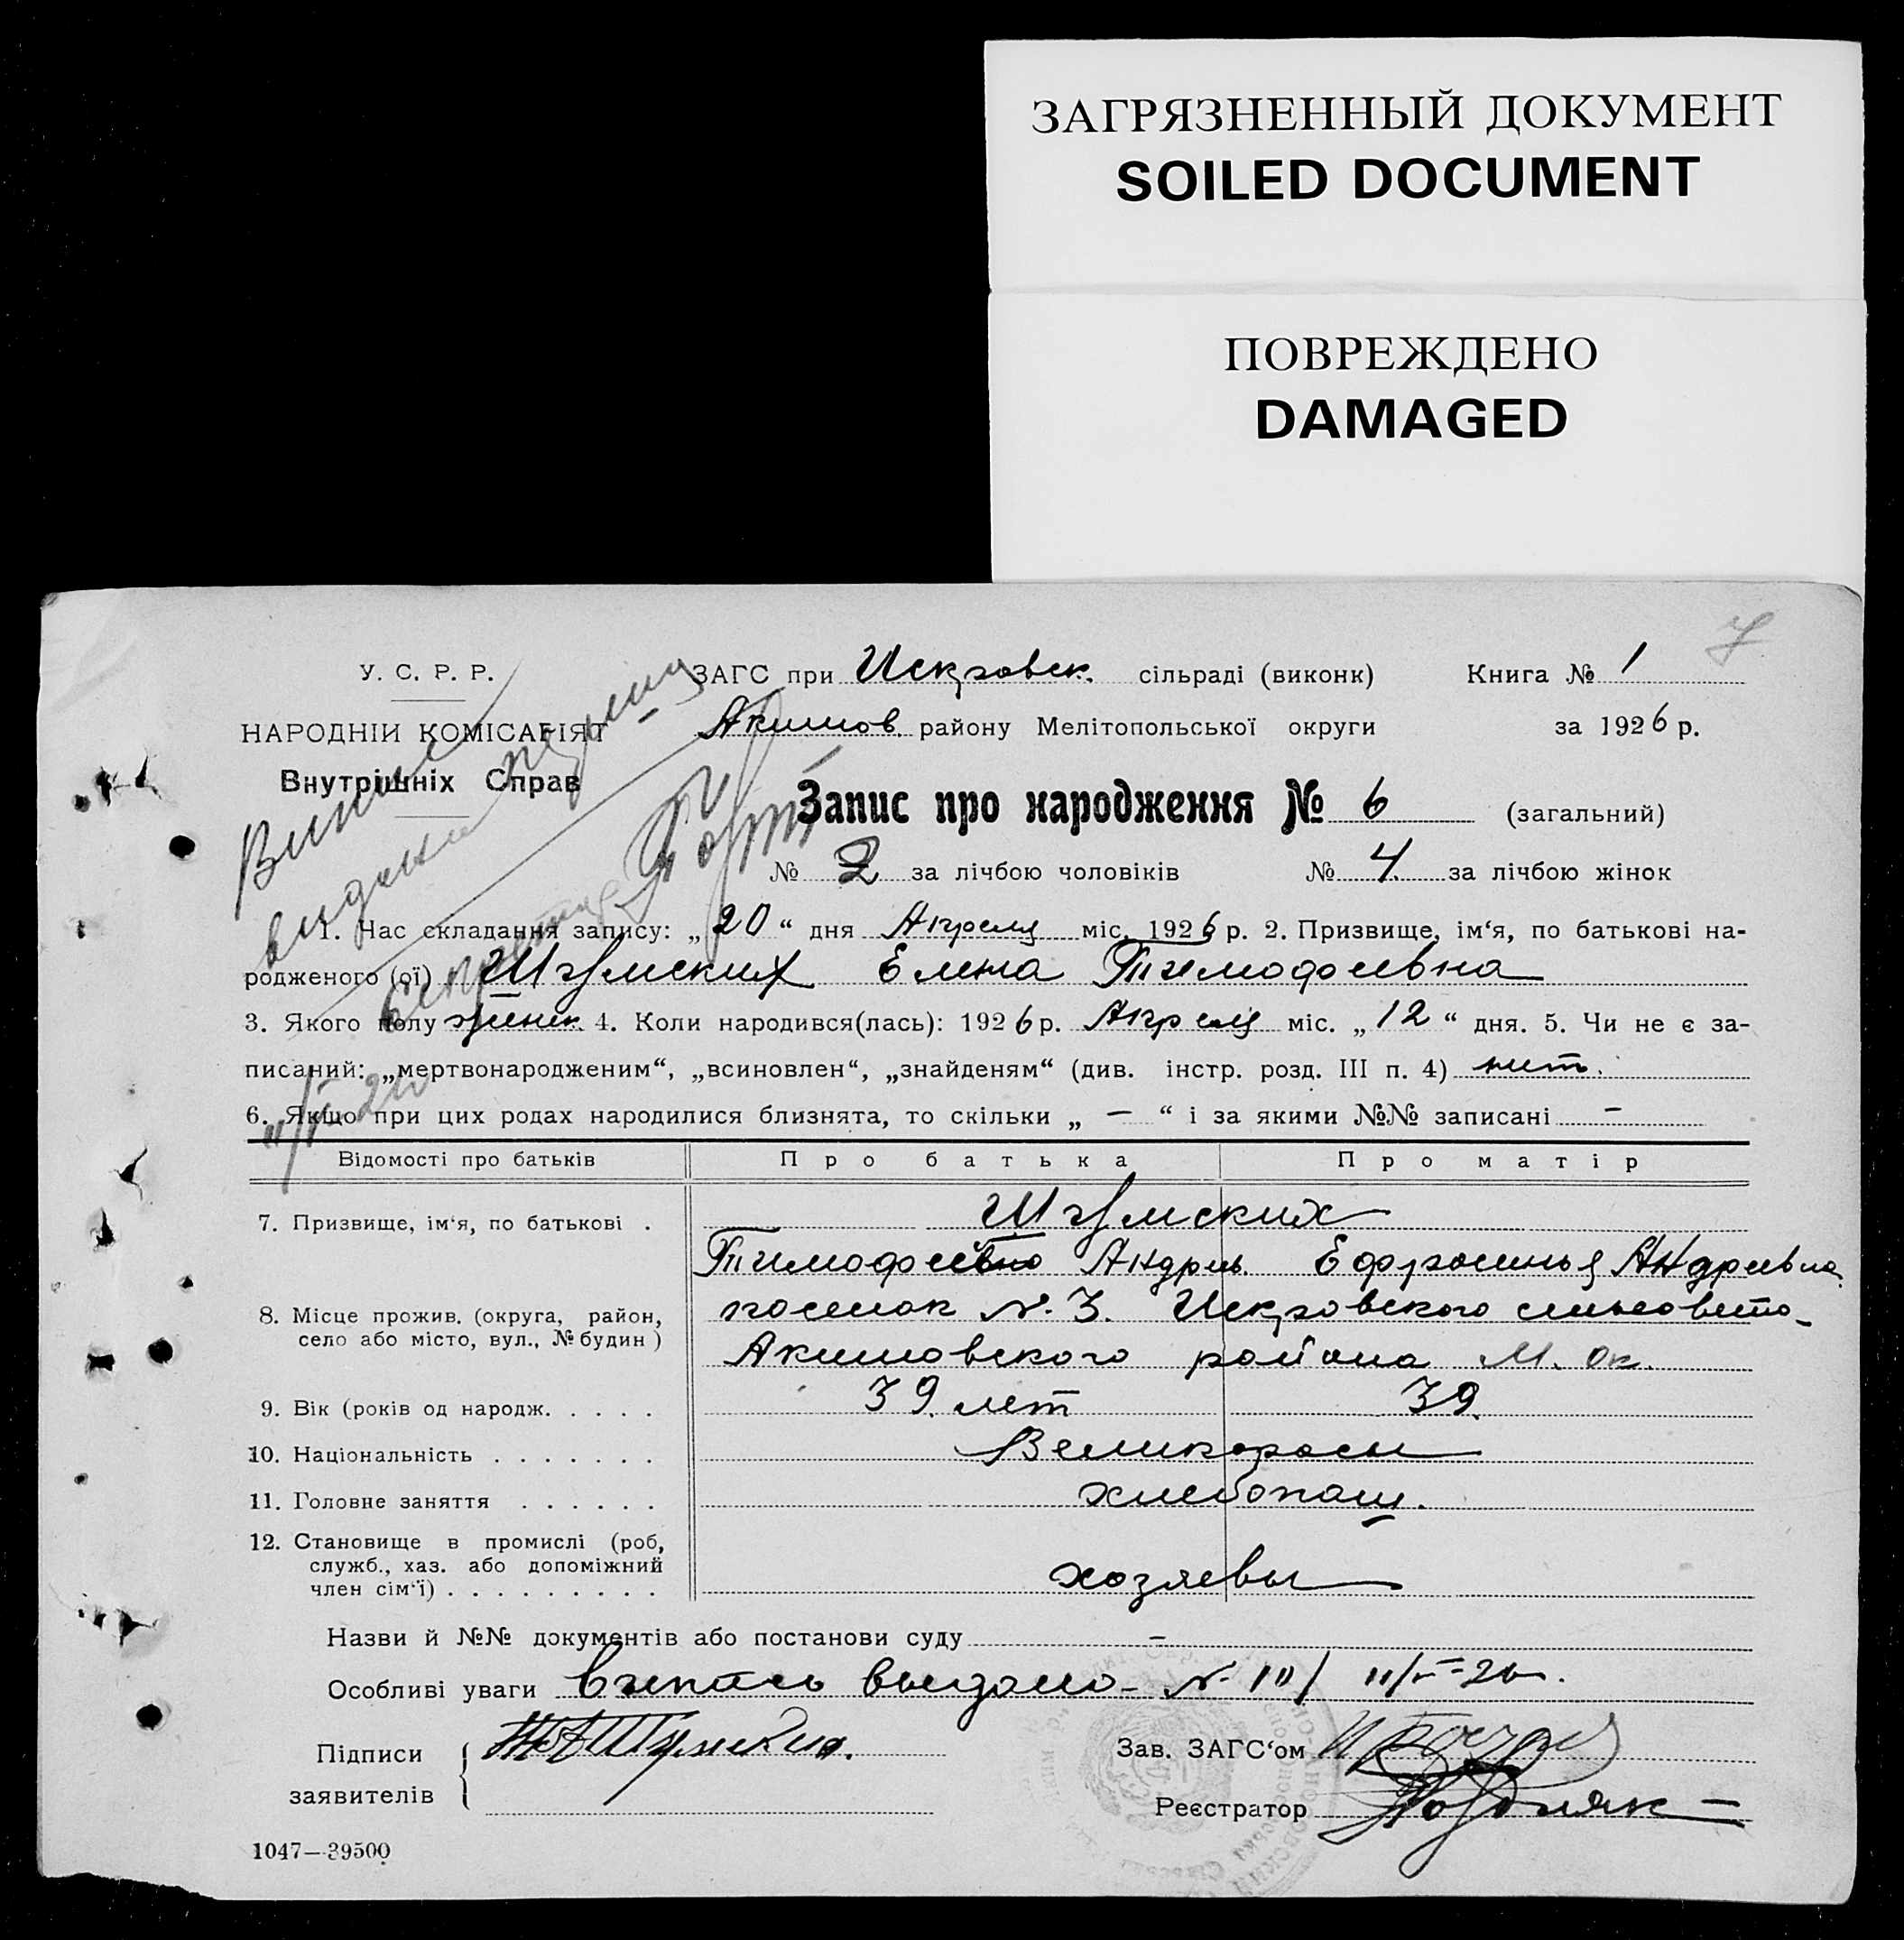 ЗАГРЯЗНЕННЫЙ ДОКУМЕНТ
SOILED DOCUMENT
ПОВРЕЖДЕНО
DAMAGED
7
У. С. Р. Р.
ЗАГС при Искровск. сільраді (виконк) Книга № 1
НАРОДНІЙ КОМІСАРІЯТ
Акимов. району Мелітопольської округи за 1926 р.
Внутрішніх Справ
Запис про народження № 6 (загальний)
№ 2 за лічбою чоловіків № 4 за лічбою жінок
1. Час складання запису: „20“ дня Апреля міс. 1926 р. 2. Призвище, ім‘я, по батькові на-
родженого (ої) Шумских Елена Тимофеевна
3. Якого полу женск. 4. Коли народився(лась): 1926 р. Апреля міс. „12“ дня. 5. Чи не є за-
писаний: „мертвонародженим“, „всиновлен“, „знайденям“ (див. інстр. розд. III п. 4) нет.
6. Якщо при цих родах народилися близнята, то скільки „ — “ і за якими №№ записані –
Відомості про батьків Про батька Про матір
7. Призвище, ім‘я, по батькові . Шумских
Тимофей Андрее. Ефросинья Андреевна
8. Місце прожив. (округа, район, село або місто, вул., № будин) поселок №. 3. Искровского сельсовета
Акимовского района М. ок.
9. Вік (років од народж. . . . . 39 лет 39.
10. Національність . . . . . . . Великоросы
11. Головне заняття . . . . . . хлебопаш.
12. Становище в промислі (роб,
служб., хаз. або допоміжний
член сім‘ї) . . . . . . . . . хозяевы
Назви й №№ документів або постанови суду –
Особливі уваги Выпись выдана №
Підписи
заявителів
Зав. ЗАГС‘ом
Реєстратор Поздняк
1047—39500